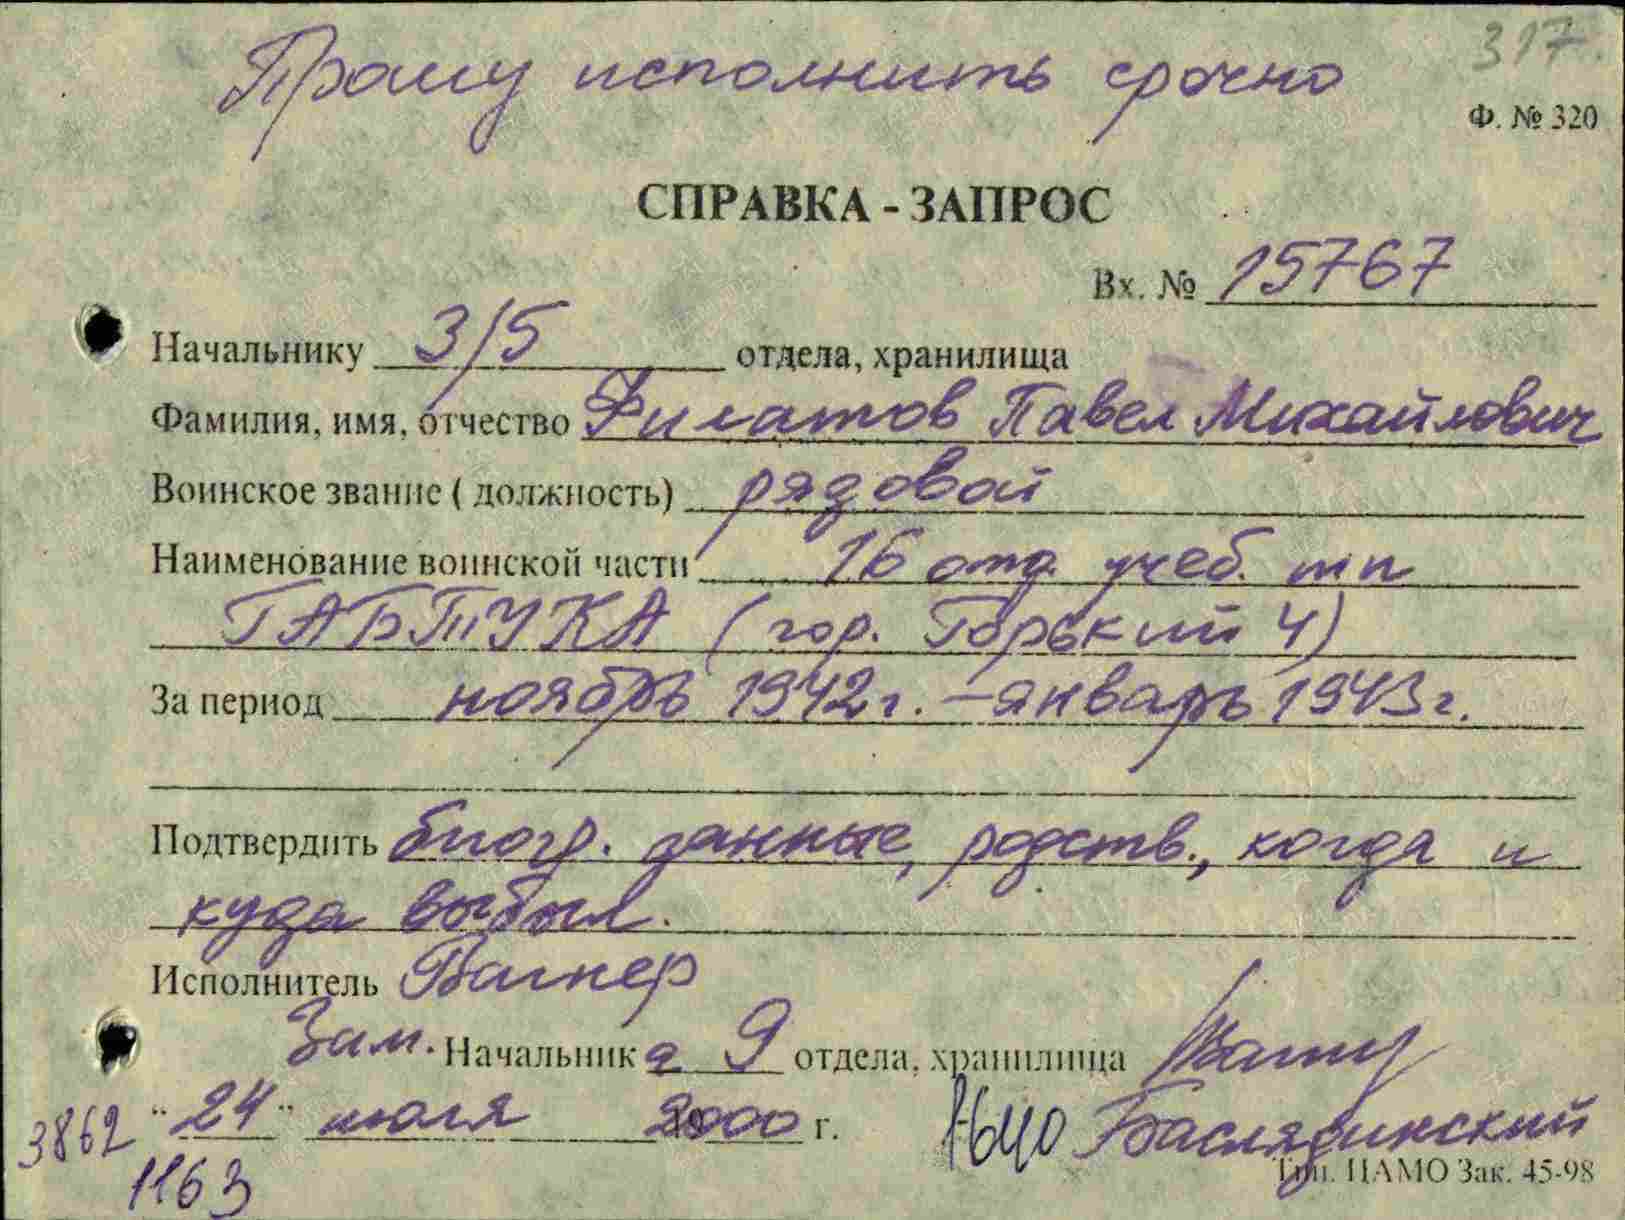 317.
Прошу исполнить срочно
Ф. № 320
СПРАВКА - ЗАПРОС
Вх. № 15767
Начальнику 3/5 отдела, хранилища
Фамилия, имя, отчество Филатов Павел Михайлович
Воинское звание ( должность) рядовой
Наименование воинской части 16 отд. учеб. тп
ГАБТУКА (гор. Горький 4)
За период ноябрь 1942г. – январь 1943г.
Подтвердить биогр. данные, родств., когда и
куда выбыл.
Исполнитель Вагнер
Зам. Начальника 9 отдела, хранилища
"24" июля 2000 г.
3862
1163
Тип. ЦАМО Зак. 45-98